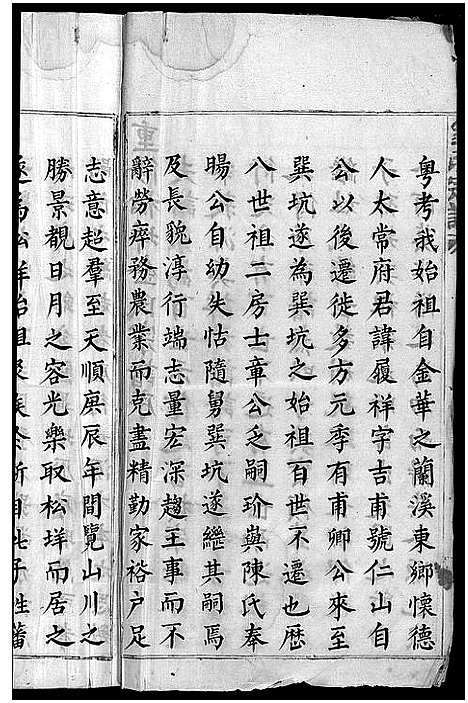 粤考我始祖自金華之蘭溪東鄉懐德
人太常府君諱履祥字吉甫號仁山自
公以後遷徙多方元季有甫卿公來至
巽坑遂為巽坑之始祖百世不遷也厯
八世祖二房士章公乏嗣玠與陳氏奉
暘公自幼失怙隨舅巽坑遂繼其嗣焉
及長貌淳行端志量宏深趨王事而不
辭勞瘁務農業而克盡精勤家裕户足
志意起羣至天順庚辰年間覽山川之
勝景覩日月之容光樂取松垟而居之
為松垟始祖及族今所自此子姓蕃